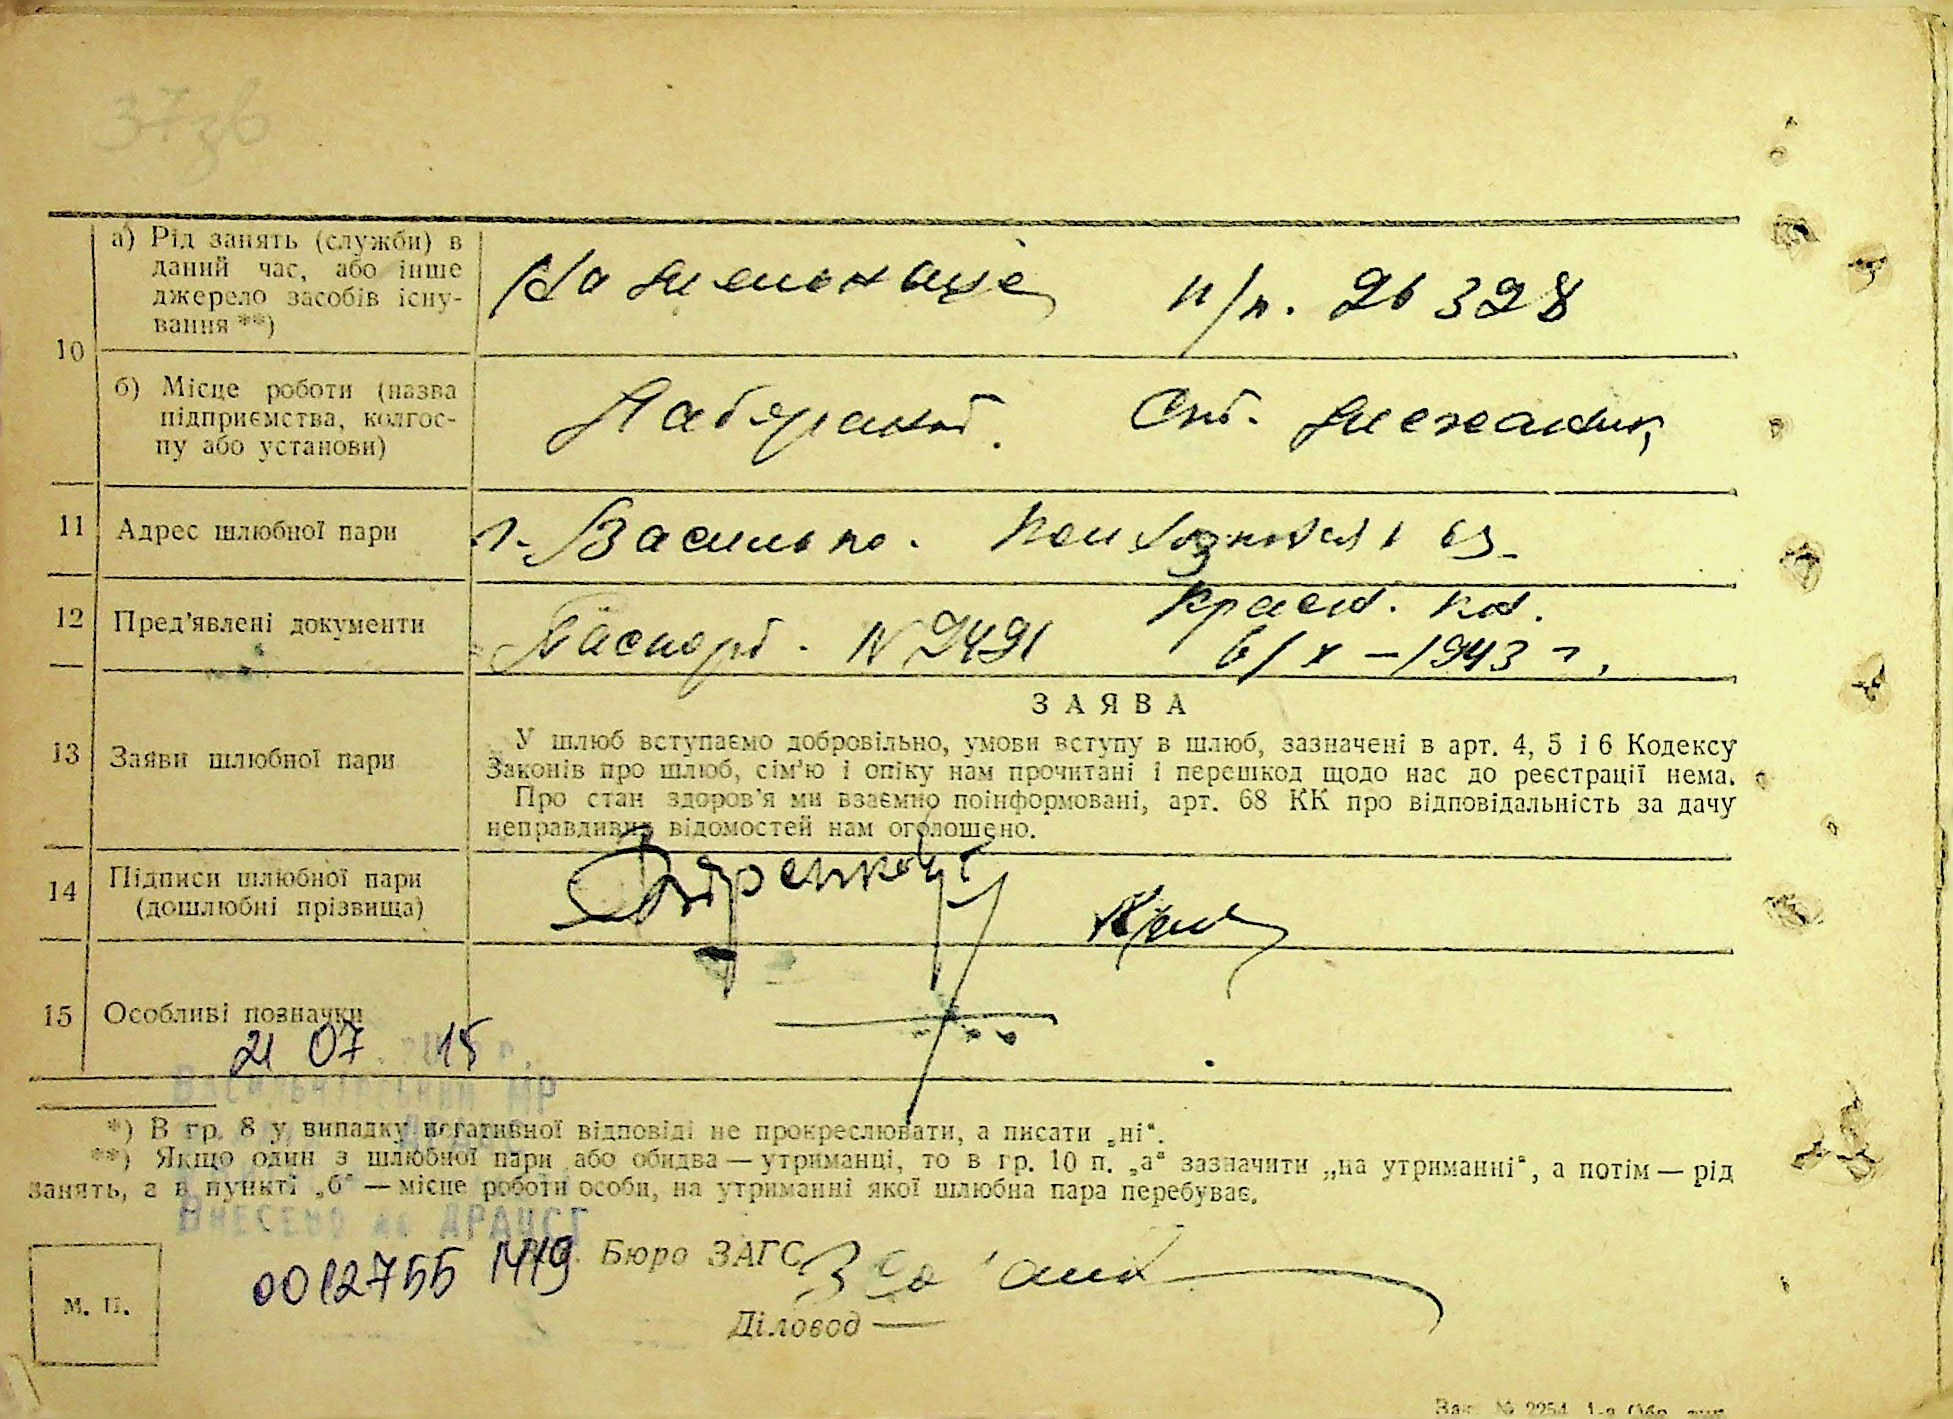 37зв
10
а) Рід занять (служби) в
даний час, або інше
джерело засобів існу-
вання **)
На мельнице п/п. 26328
б) Місце роботи (назва
підприємства, колгос-
пу або установи)
Лаборант. Ст. механик
11 Адрес шлюбної пари
г. Васильк.
12 Пред'явлені документи
Паспорт. N 2491 Красн. кн.
6/X – 1943 г.
ЗАЯВА
13 Заяви шлюбної пари
У шлюб вступаємо добровільно, умови вступу в шлюб, зазначені в арт. 4, 5 і 6 Кодексу
Законів про шлюб, сім'ю і опіку нам прочитані і перешкод щодо нас до реєстрації нема.
Про стан здоров'я ми взаємно поінформовані, арт. 68 КК про відповідальність за дачу
неправдивих відомостей нам оголошено.
14 Підписи шлюбної пари
(дошлюбні прізвища)
15 Особливі позначки
21 07 15
*) В гр. 8 у випадку негативної відповіді не прокреслювати, а писати „ні“.
**) Якщо один з шлюбної пари або обидва — утриманці, то в гр. 10 п. „а“ зазначити „на утриманні“, а потім — рід
занять, а в пункті „б“ — місце роботи особи, на утриманні якої шлюбна пара перебуває.
Внесено до ДРАЦСГ
0012755 1419
Бюро ЗАГС
М. П.
Діловод —
Зак. № 2254. 1-а